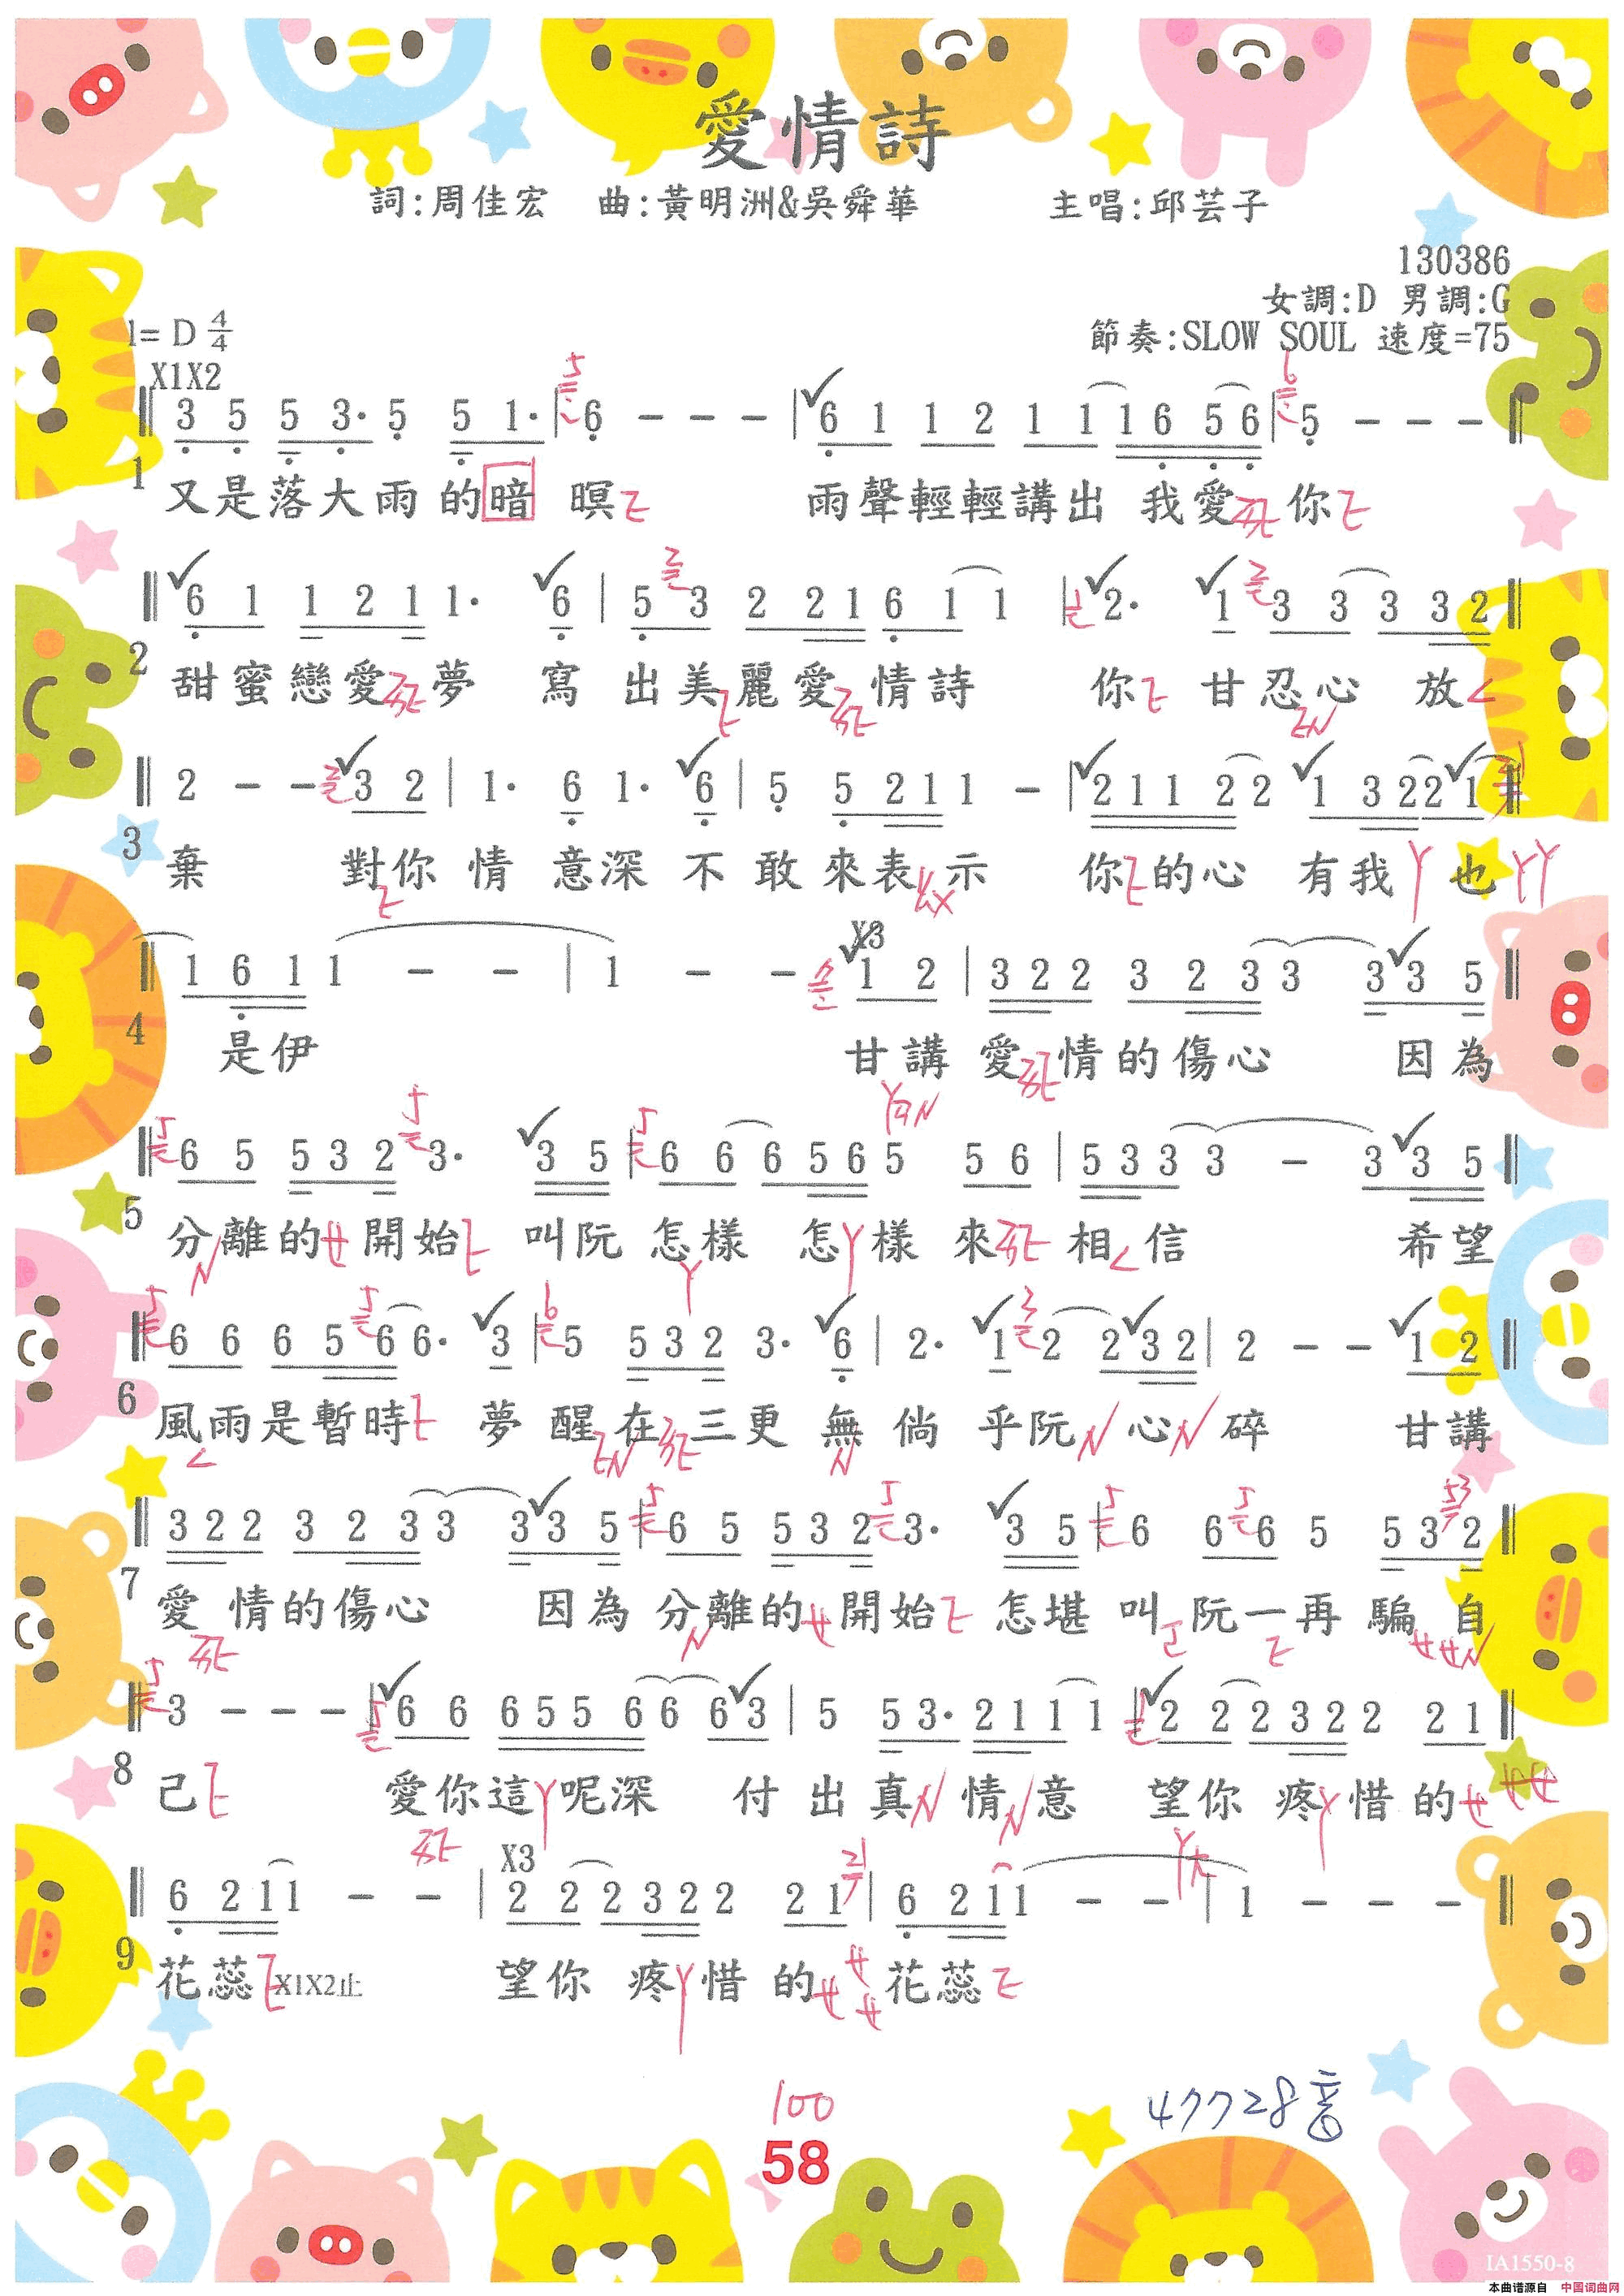 愛情詩
詞:周佳宏 曲:黃明洲&吳舜華 主唱:邱芸子
130386
女調:D 男調:G
1= D 4/4
節奏:SLOW SOUL 速度=75
X1X2
3 5 5 3· 5 5 1· | 6 - - - | 6 1 1 2 1 1 1 6 5 6 | 5 - - -
1 又是落大雨的暗 暝 雨聲輕輕講出 我愛 你
6 1 1 2 1 1· 6 | 5 3 2 2 1 6 1 1 | 2· 1 3 3 3 3 2
2 甜蜜戀愛 夢 寫 出美麗愛 情詩 你 甘忍心 放
2 - - 3 2 | 1· 6 1· 6 | 5 5 2 1 1 - | 2 1 1 2 2 1 3 2 2 1
3 棄 對你 情 意深 不 敢 來表 示 你 的心 有我 也
X3
1 6 1 1 - - | 1 - - 1 2 | 3 2 2 3 2 3 3 3 3 5
4 是伊 甘講 愛 情的傷心 因為
6 5 5 3 2 3· 3 5 | 6 6 6 5 6 5 5 6 | 5 3 3 3 - 3 3 5
5 分離的 開始 叫阮 怎樣 怎 樣 來 相 信 希望
6 6 6 5 6 6· 3 | 5 5 3 2 3· 6 | 2· 1 2 2 3 2 | 2 - - 1 2
6 風雨是暫時 夢 醒在 三更 無 倘 乎阮 心 碎 甘講
3 2 2 3 2 3 3 3 3 5 | 6 5 5 3 2 3· 3 5 | 6 6 6 5 5 3 2
7 愛 情的傷心 因為 分離的 開始 怎堪 叫 阮一再 騙 自
3 - - - | 6 6 6 5 5 6 6 6 3 | 5 5 3· 2 1 1 1 | 2 2 2 3 2 2 2 1
8 己 愛你這 呢深 付 出 真 情 意 望你 疼 惜 的
X3
6 2 1 1 - - | 2 2 2 3 2 2 2 1 | 6 2 1 1 - - | 1 - - -
9 花蕊 X1X2止 望你 疼 惜 的 花蕊
100
47728音
58
IA1550-8
本曲谱源自 中国词曲网